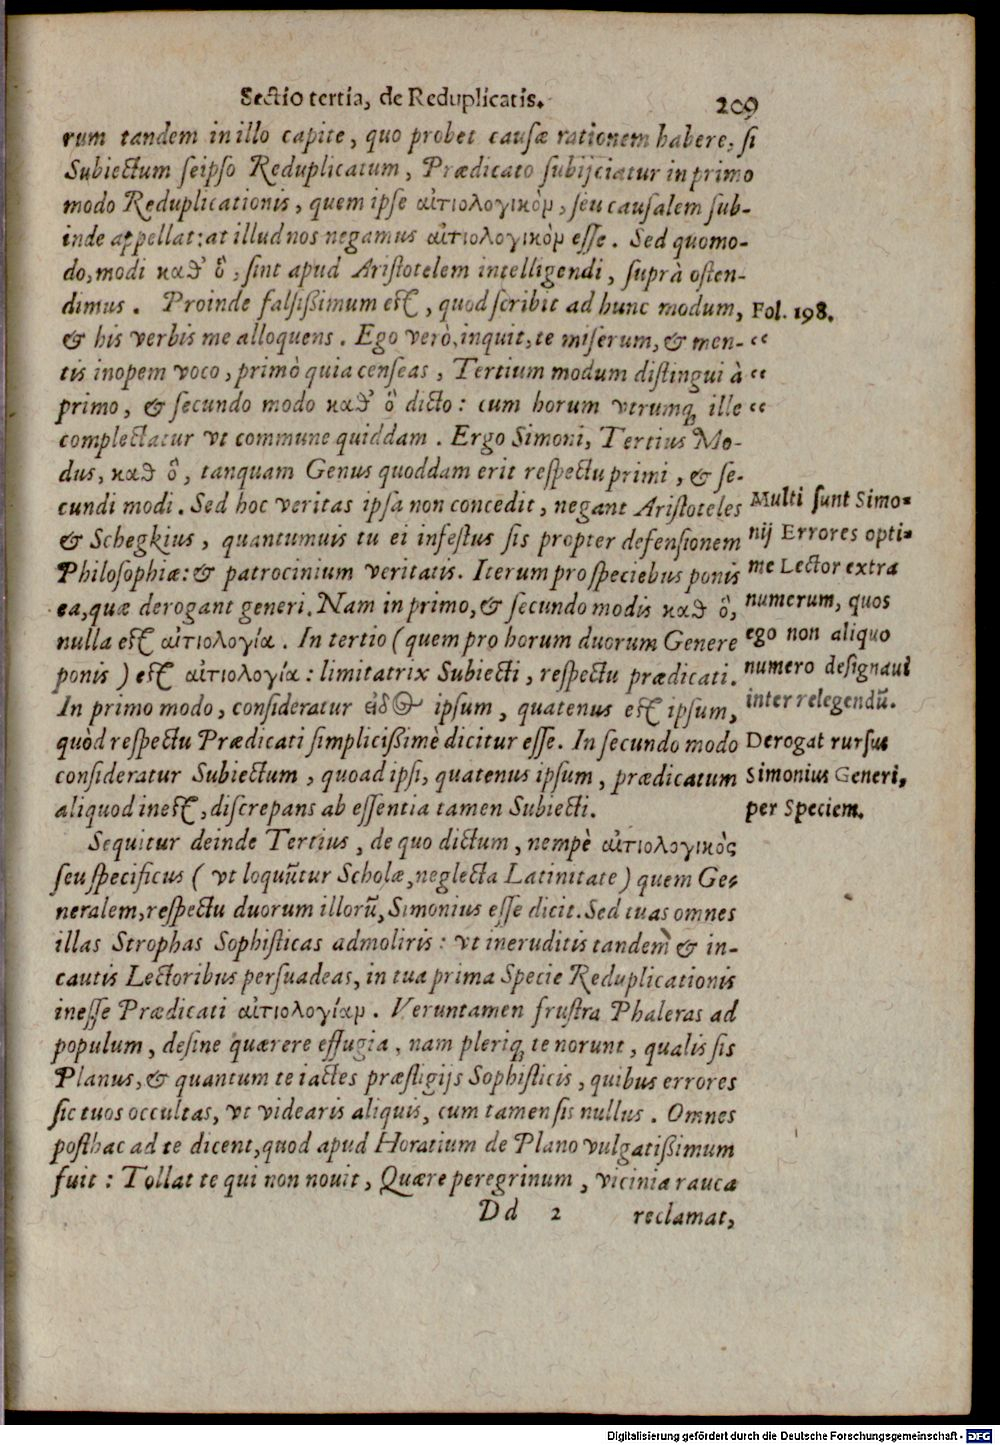 Sectio tertia, de Reduplicatis. 209
rum tandem in illo capite, quo probet causæ rationem habere, si
Subiectum seipso Reduplicatum, Prædicato subijciatur in primo
modo Reduplicationis, quem ipse αἰτιολογικὸν, seu causalem sub-
inde appellat: at illud nos negamus αἰτιολογικὸν esse. Sed quomo-
do, modi καθ᾽ ὃ, sint apud Aristotelem intelligendi, suprà osten-
dimus. Proinde falsißimum est, quod scribit ad hunc modum,
Fol. 198.
& his verbis me alloquens. Ego verò, inquit, te miserum, & men- “
tis inopem voco, primò quia censeas, Tertium modum distingui à “
primo, & secundo modo καθ᾽ ὃ dicto: cum horum vtrumq; ille “
complectatur vt commune quiddam. Ergo Simoni, Tertius Mo-
dus, καθ ὃ, tanquam Genus quoddam erit respectu primi, & se-
cundi modi. Sed hoc veritas ipsa non concedit, negant Aristoteles
& Schegkius, quantumuis tu ei infestus sis propter defensionem
Philosophiæ: & patrocinium veritatis. Iterum pro speciebus ponis
ea, quæ derogant generi. Nam in primo, & secundo modis καθ ὃ,
nulla est αἰτιολογία. In tertio (quem pro horum duorum Genere
ponis) est αἰτιολογία: limitatrix Subiecti, respectu prædicati.
Multi sunt Simo-
nij Errores opti-
me Lector extra
numerum, quos
ego non aliquo
numero designaui
inter relegendũ.
In primo modo, consideratur εἶδος ipsum, quatenus est ipsum,
quòd respectu Prædicati simplicißimè dicitur esse. In secundo modo
consideratur Subiectum, quoad ipsi, quatenus ipsum, prædicatum
aliquod inest, discrepans ab essentia tamen Subiecti.
Derogat rursus
Simonius Generi,
per Speciem.
Sequitur deinde Tertius, de quo dictum, nempè αἰτιολογικὸς
seu specificus (vt loquũtur Scholæ, neglecta Latinitate) quem Ge-
neralem, respectu duorum illorũ, Simonius esse dicit. Sed tuas omnes
illas Strophas Sophisticas admoliris: vt ineruditis tandem & in-
cautis Lectoribus persuadeas, in tua prima Specie Reduplicationis
inesse Prædicati αἰτιολογίαν. Veruntamen frustra Phaleras ad
populum, desine quærere effugia, nam pleriq; te norunt, qualis sis
Planus, & quantum te iactes præstigijs Sophisticis, quibus errores
sic tuos occultas, vt videaris aliquis, cum tamen sis nullus. Omnes
posthac ad te dicent, quod apud Horatium de Plano vulgatißimum
fuit: Tollat te qui non nouit, Quære peregrinum, vicinia rauca
Dd 2 reclamat,
Digitalisierung gefördert durch die Deutsche Forschungsgemeinschaft - DFG